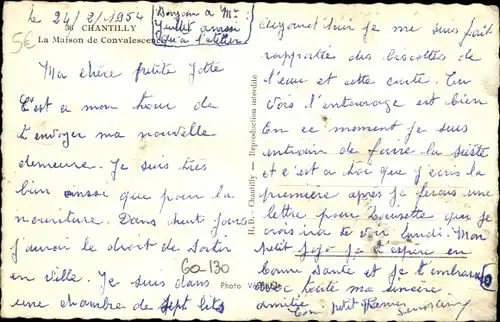 le 24/2/1954
Bonjour à Mr
Juillet aussi
qu'à l'atelier
5€
36 CHANTILLY
La Maison de Convalescence
Ma chère petite
C'est a mon tour de
t'envoyer ma nouvelle
demeure. Je suis très
bien ainsi que pour la
nouriture. Dans huit jours
j'aurai le droit de sortir
en ville. Je suis dans
une chambre de sept lits
60-130
Photo
H. D. - Chantilly - Reproduction interdite
aujourd'hui je me suis fait
rapportée des biscottes de
l'eau et cette carte. Tu
vois l'entourage est bien
En ce moment je suis
entrain de faire la sieste
et c'est a toi que j'écris la
première après je ferais une
lettre pour que je
crois ira te voir lundi. Mon
petit je t'espère en
bonne santé et je t'embrasse
avec toute ma sincère
amitié
Ton petit